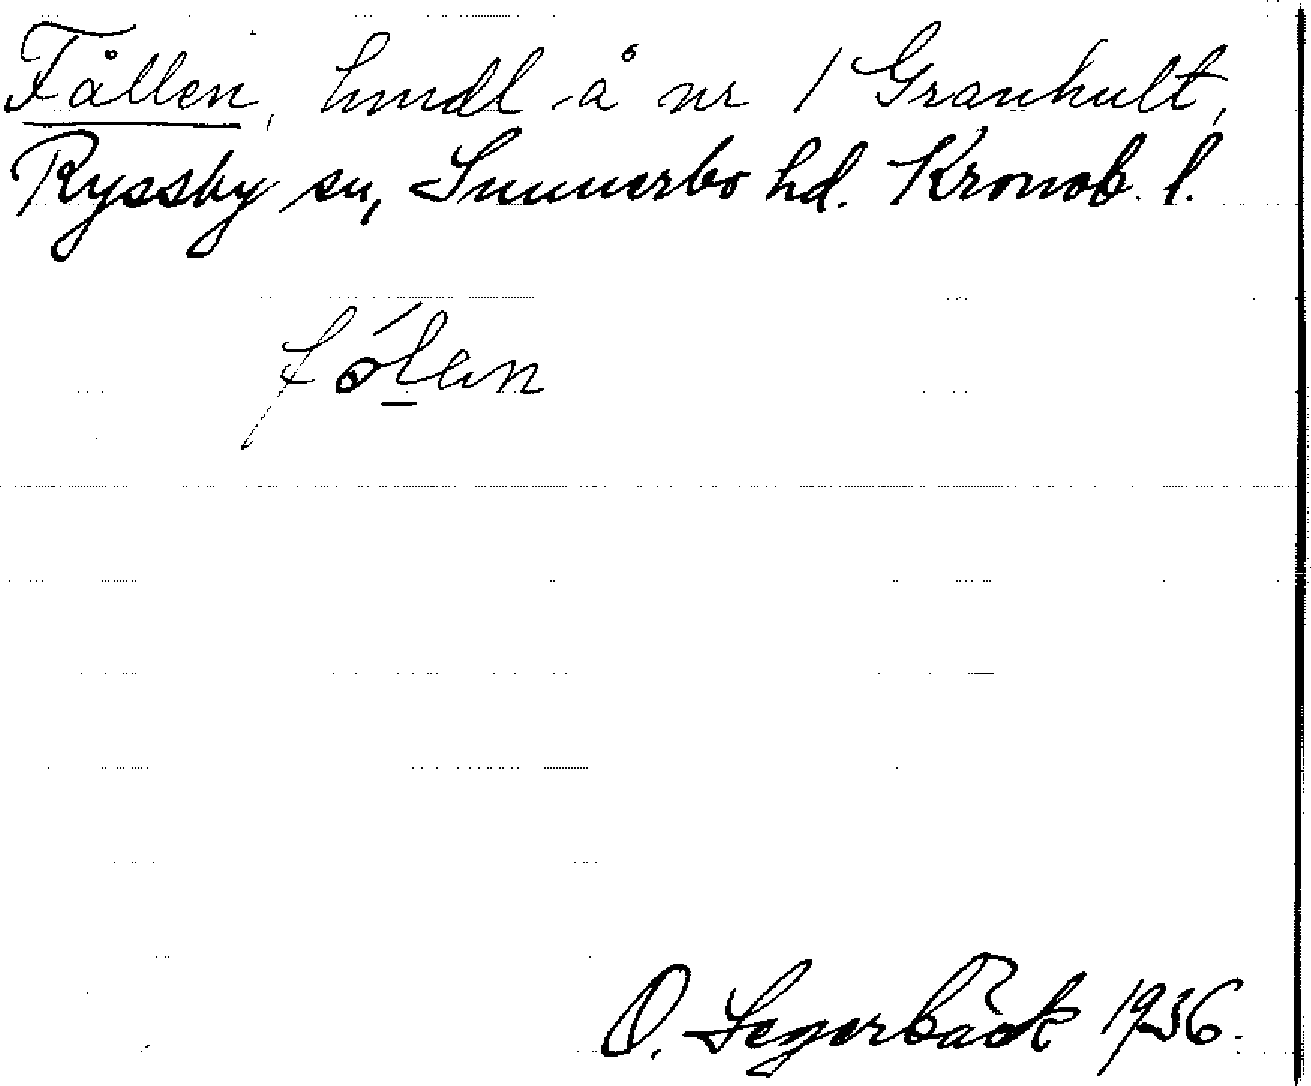 Fållen, hmdl å nr 1 Granhult,
Ryssby sn, Sunnerbo hd. Kronob. l.
fólen
O. Segerbäck 1936.